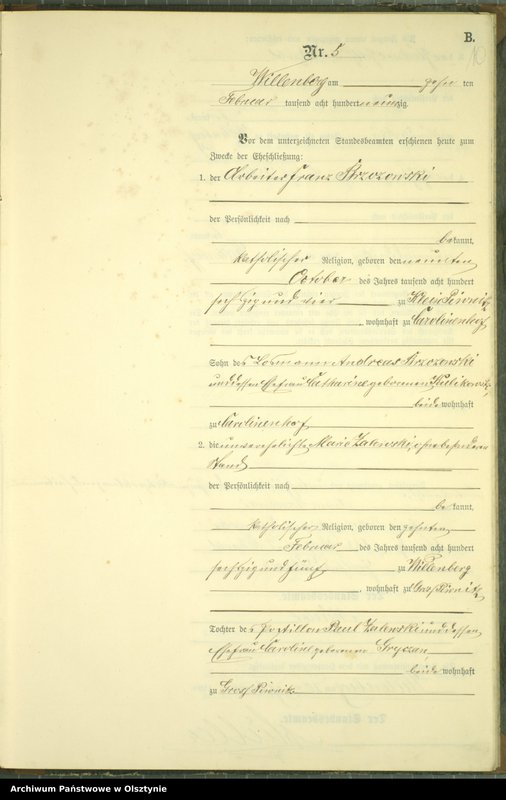 B.
10
Nr. 5
Willenberg am zehn ten
Februar tausend acht hundert neunzig.
Vor dem unterzeichneten Standesbeamten erschienen heute zum
Zwecke der Eheschließung:
1. der Arbeiter Franz
der Persönlichkeit nach
bekannt,
katholischer Religion, geboren den neunten
October des Jahres tausend acht hundert
sechszig und vier zu Klein Piwnitz
, wohnhaft zu Carolinenhof
Sohn des Losmann Andreas
und dessen Ehefrau Catharine geborenen
beide wohnhaft
zu Carolinenhof
2. die unverehelichte Marie Zalewski, ohne besonderen
Stand
der Persönlichkeit nach
bekannt,
katholischer Religion, geboren den zehnten
Februar des Jahres tausend acht hundert
sechszig und fünf zu Willenberg
, wohnhaft zu Gross Piwnitz
Tochter des Postillon Paul Zalewski und dessen
Ehefrau Caroline geborenen Gryczan
beide wohnhaft
zu Gross Piwnitz
Archiwum Państwowe w Olsztynie